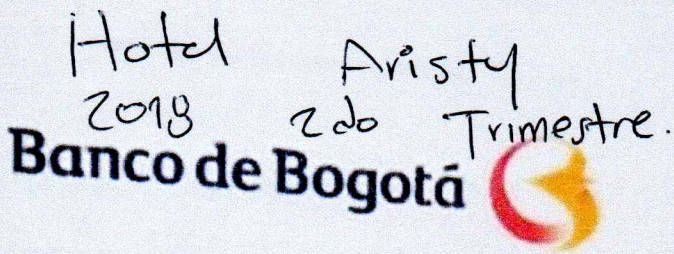 Hotel Aristy
2018 2do Trimestre.
Banco de Bogotá